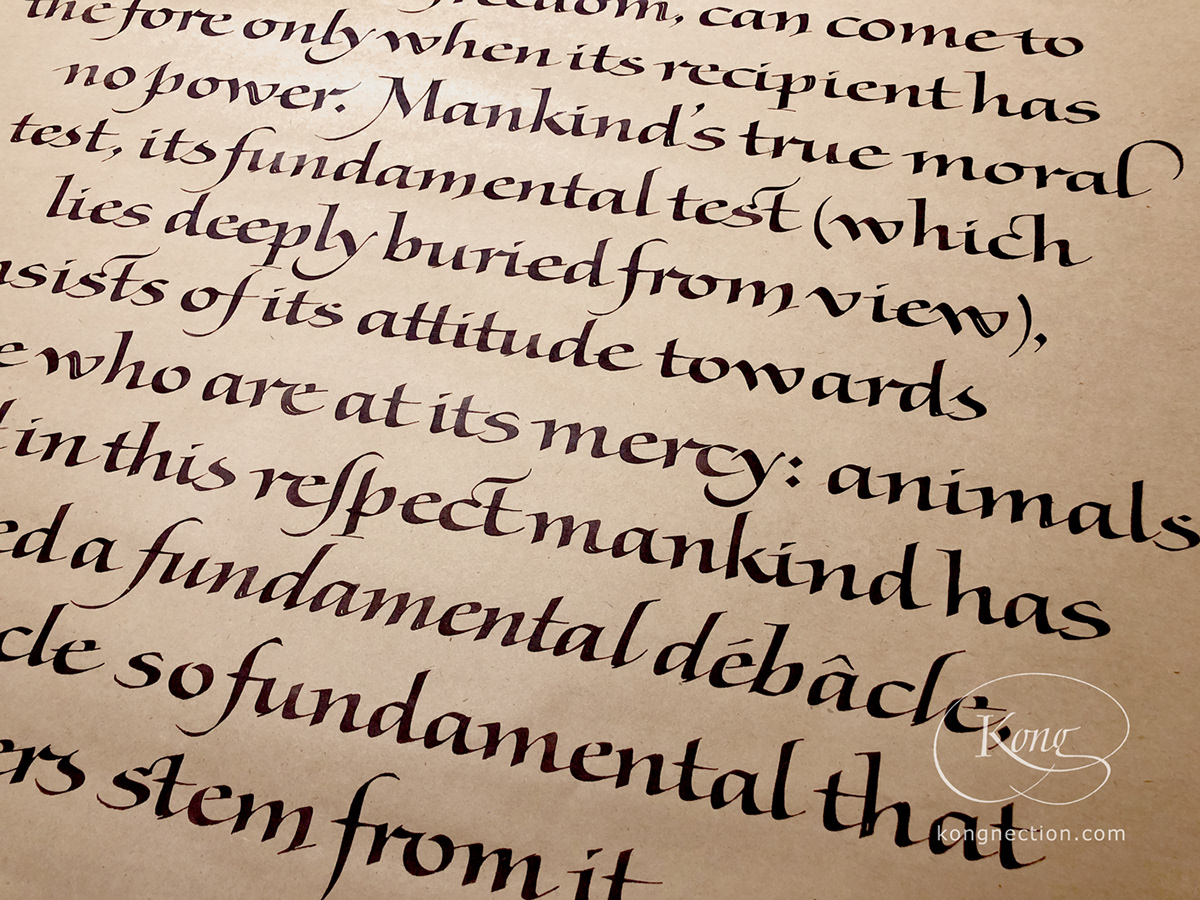 freedom, can come to
the fore only when its recipient has
no power. Mankind's true moral
test, its fundamental test (which
lies deeply buried from view),
of its attitude towards
who are at its mercy: animals
in this reſpect mankind has
a fundamental débâcle,
so fundamental that
stem from it
Kong
kongnection.com